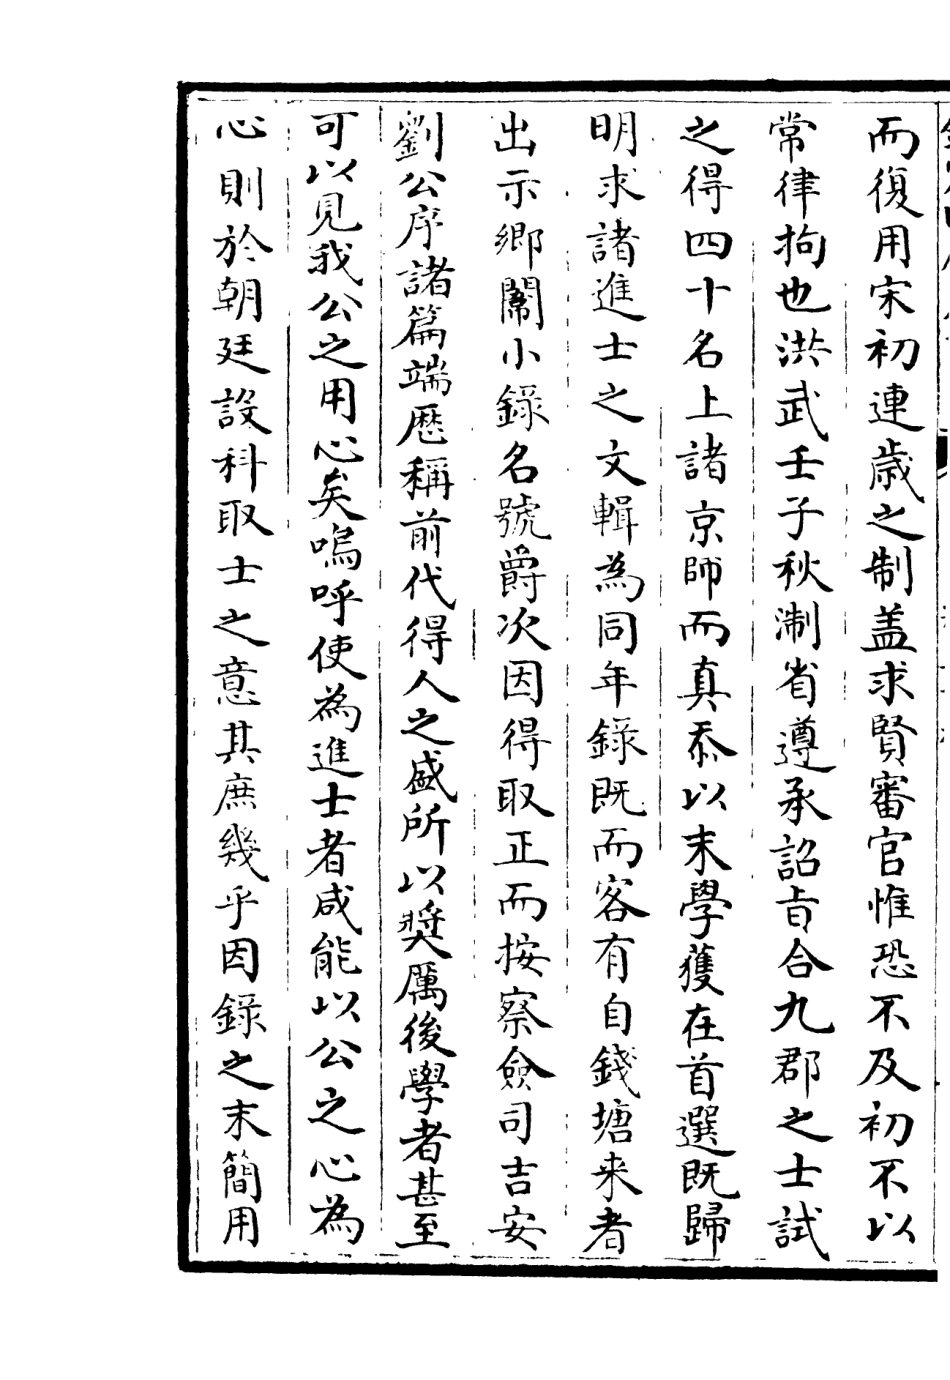 而復用宋初連歳之制盖求賢審官惟恐不及初不以
常律拘也洪武壬子秋淛省遵承詔㫖合九郡之士試
之得四十名上諸京師而真忝以末學獲在首選既歸
明求諸進士之文輯為同年錄既而客有自錢塘来者
出示鄉闈小錄名號爵次因得取正而按察僉司吉安
劉公序諸篇端歴稱前代得人之盛所以奬厲後學者甚至
可以見我公之用心矣嗚呼使為進士者咸能以公之心為
心則於朝廷設科取士之意其庶幾乎因錄之末簡用